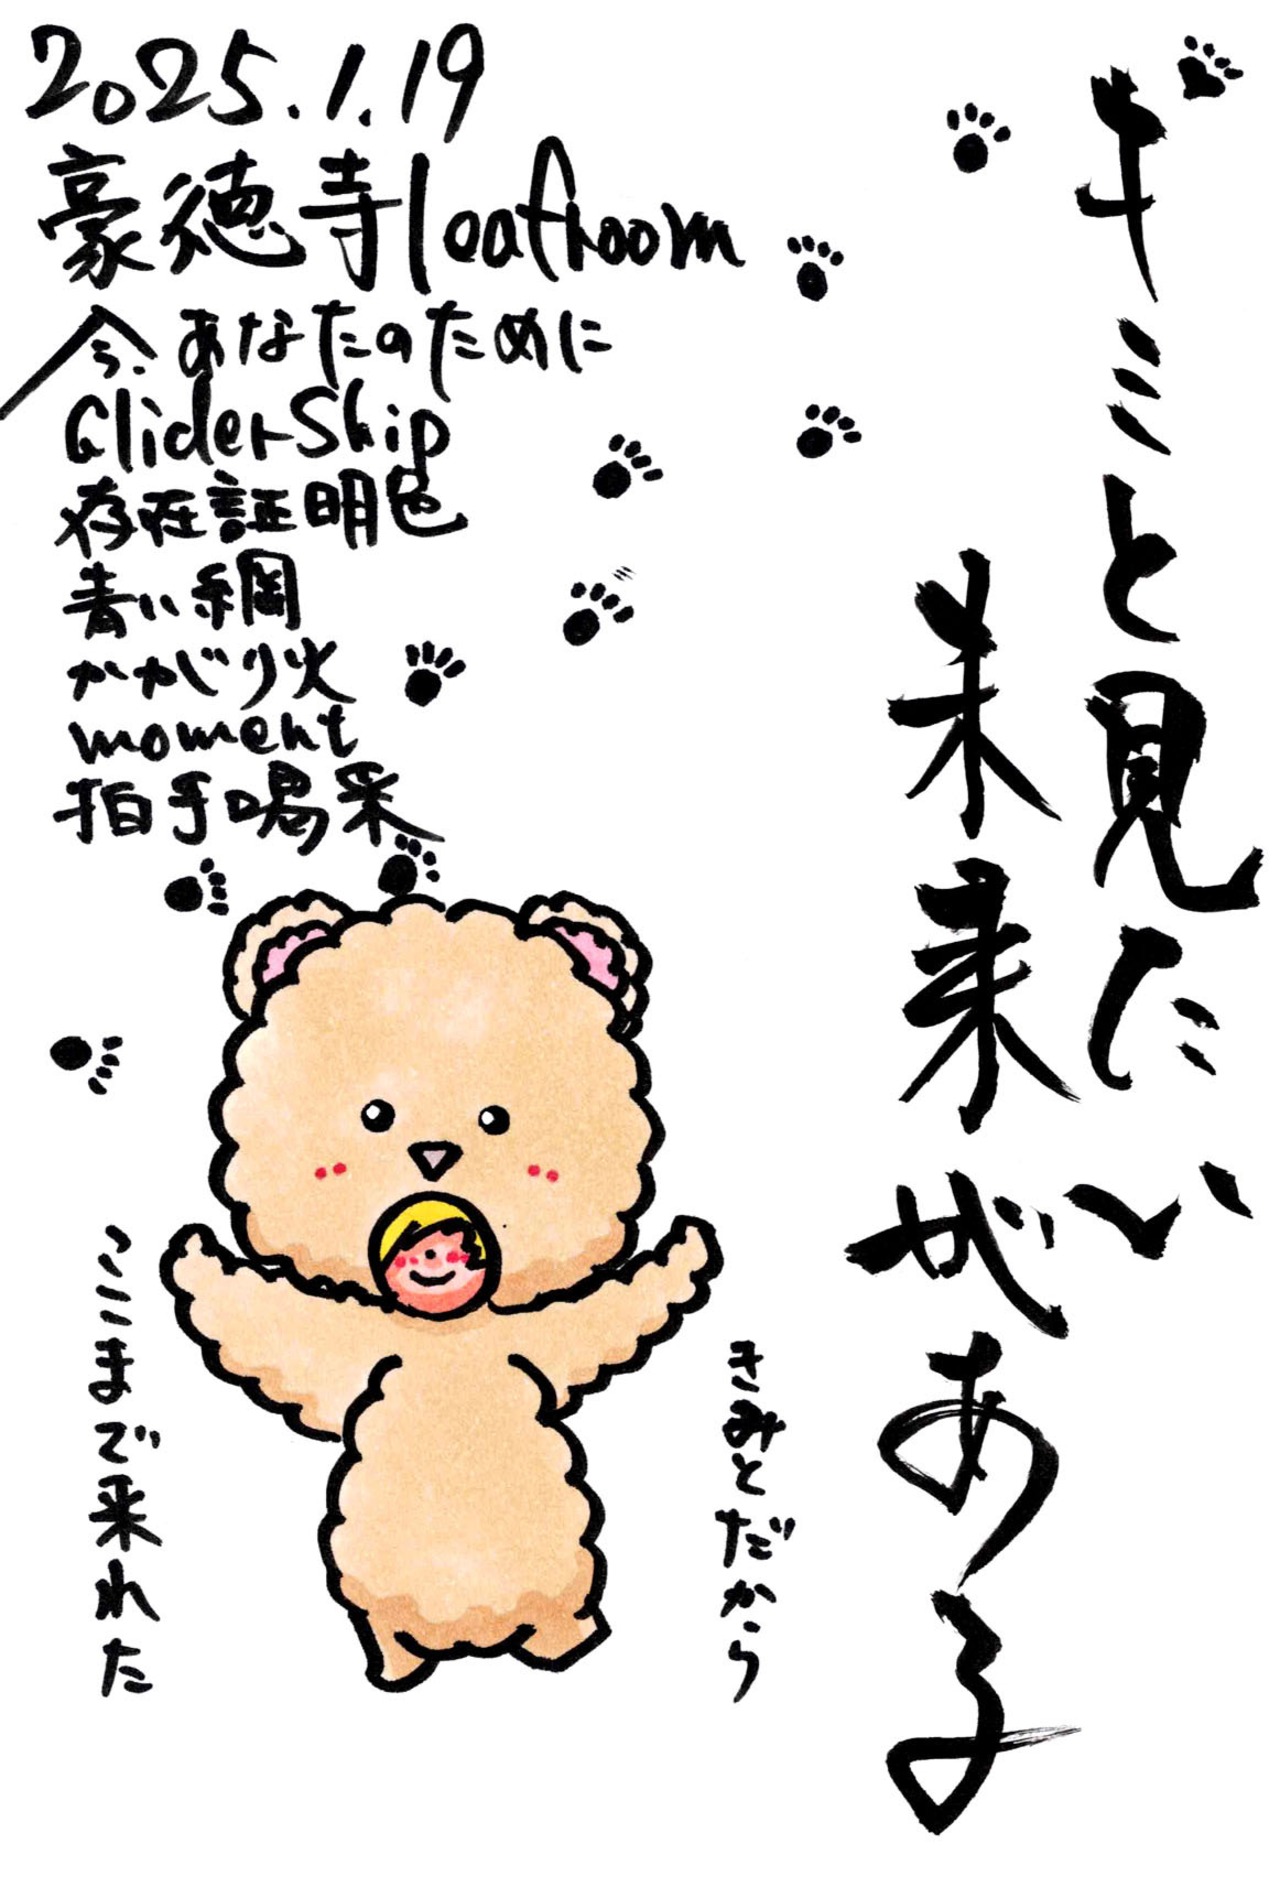 キミと見にい
未来がある
2025.1.19
豪徳寺leafroom
今、あなたのために
GliderShip
存在証明色
青い綱
かがり火
moment
拍手喝采
きみとだから
ここまで来れた